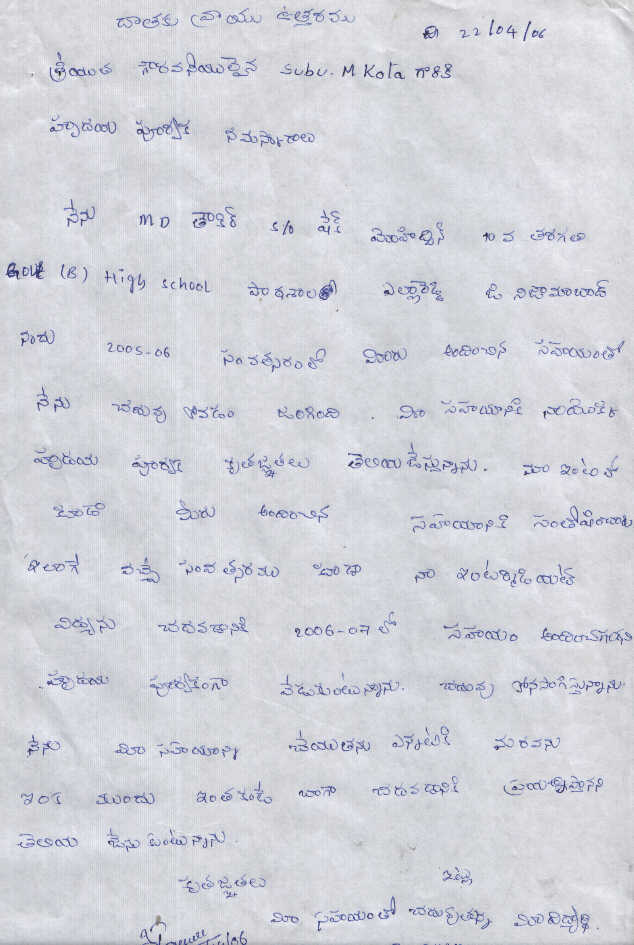 దాతకు వ్రాయు ఉత్తరము
ది 22/04/06
శ్రీయుత గౌరవనీయులైన Subu. M Kota గారికి
హృదయ పూర్వక నమస్కారాలు
నేను MD తాకీర్ S/o షేక్ మొహిద్దిన్ 10 వ తరగతి
Govt (B) High School పాఠశాలలో ఎల్లారెడ్డి జి నిజామాబాద్
నందు 2005-06 సంవత్సరంలో మీరు అందించిన సహాయంతో
నేను చదువు కోవడం జరిగింది. మీ సహాయానికి నాయొక్క
హృదయ పూర్వక కృతజ్ఞతలు తెలియజేస్తున్నాను. మా ఇంటిలో
కూడా మీరు అందించిన సహాయానికి సంతోషించారు
ఇలాగే వచ్చే సంవత్సరము కూడా నా ఇంటర్మీడియట్
విద్యను చదవడానికి 2006-07 లో సహాయం అందించగలరని
హృదయ పూర్వకంగా వేడుకుంటున్నాను. చదువు కొనసాగిస్తున్నాను.
నేను మీ సహాయాన్ని చేయుతను ఎన్నటికి మరవను
ఇంక ముందు ఇంతకంటే బాగా చదవడానికి ప్రయత్నిస్తానని
తెలియ జేసు కుంటున్నాను.
కృతజ్ఞతలు ఇట్లు
మీ సహాయంతో చదువుతున్న మీ విద్యార్థి.